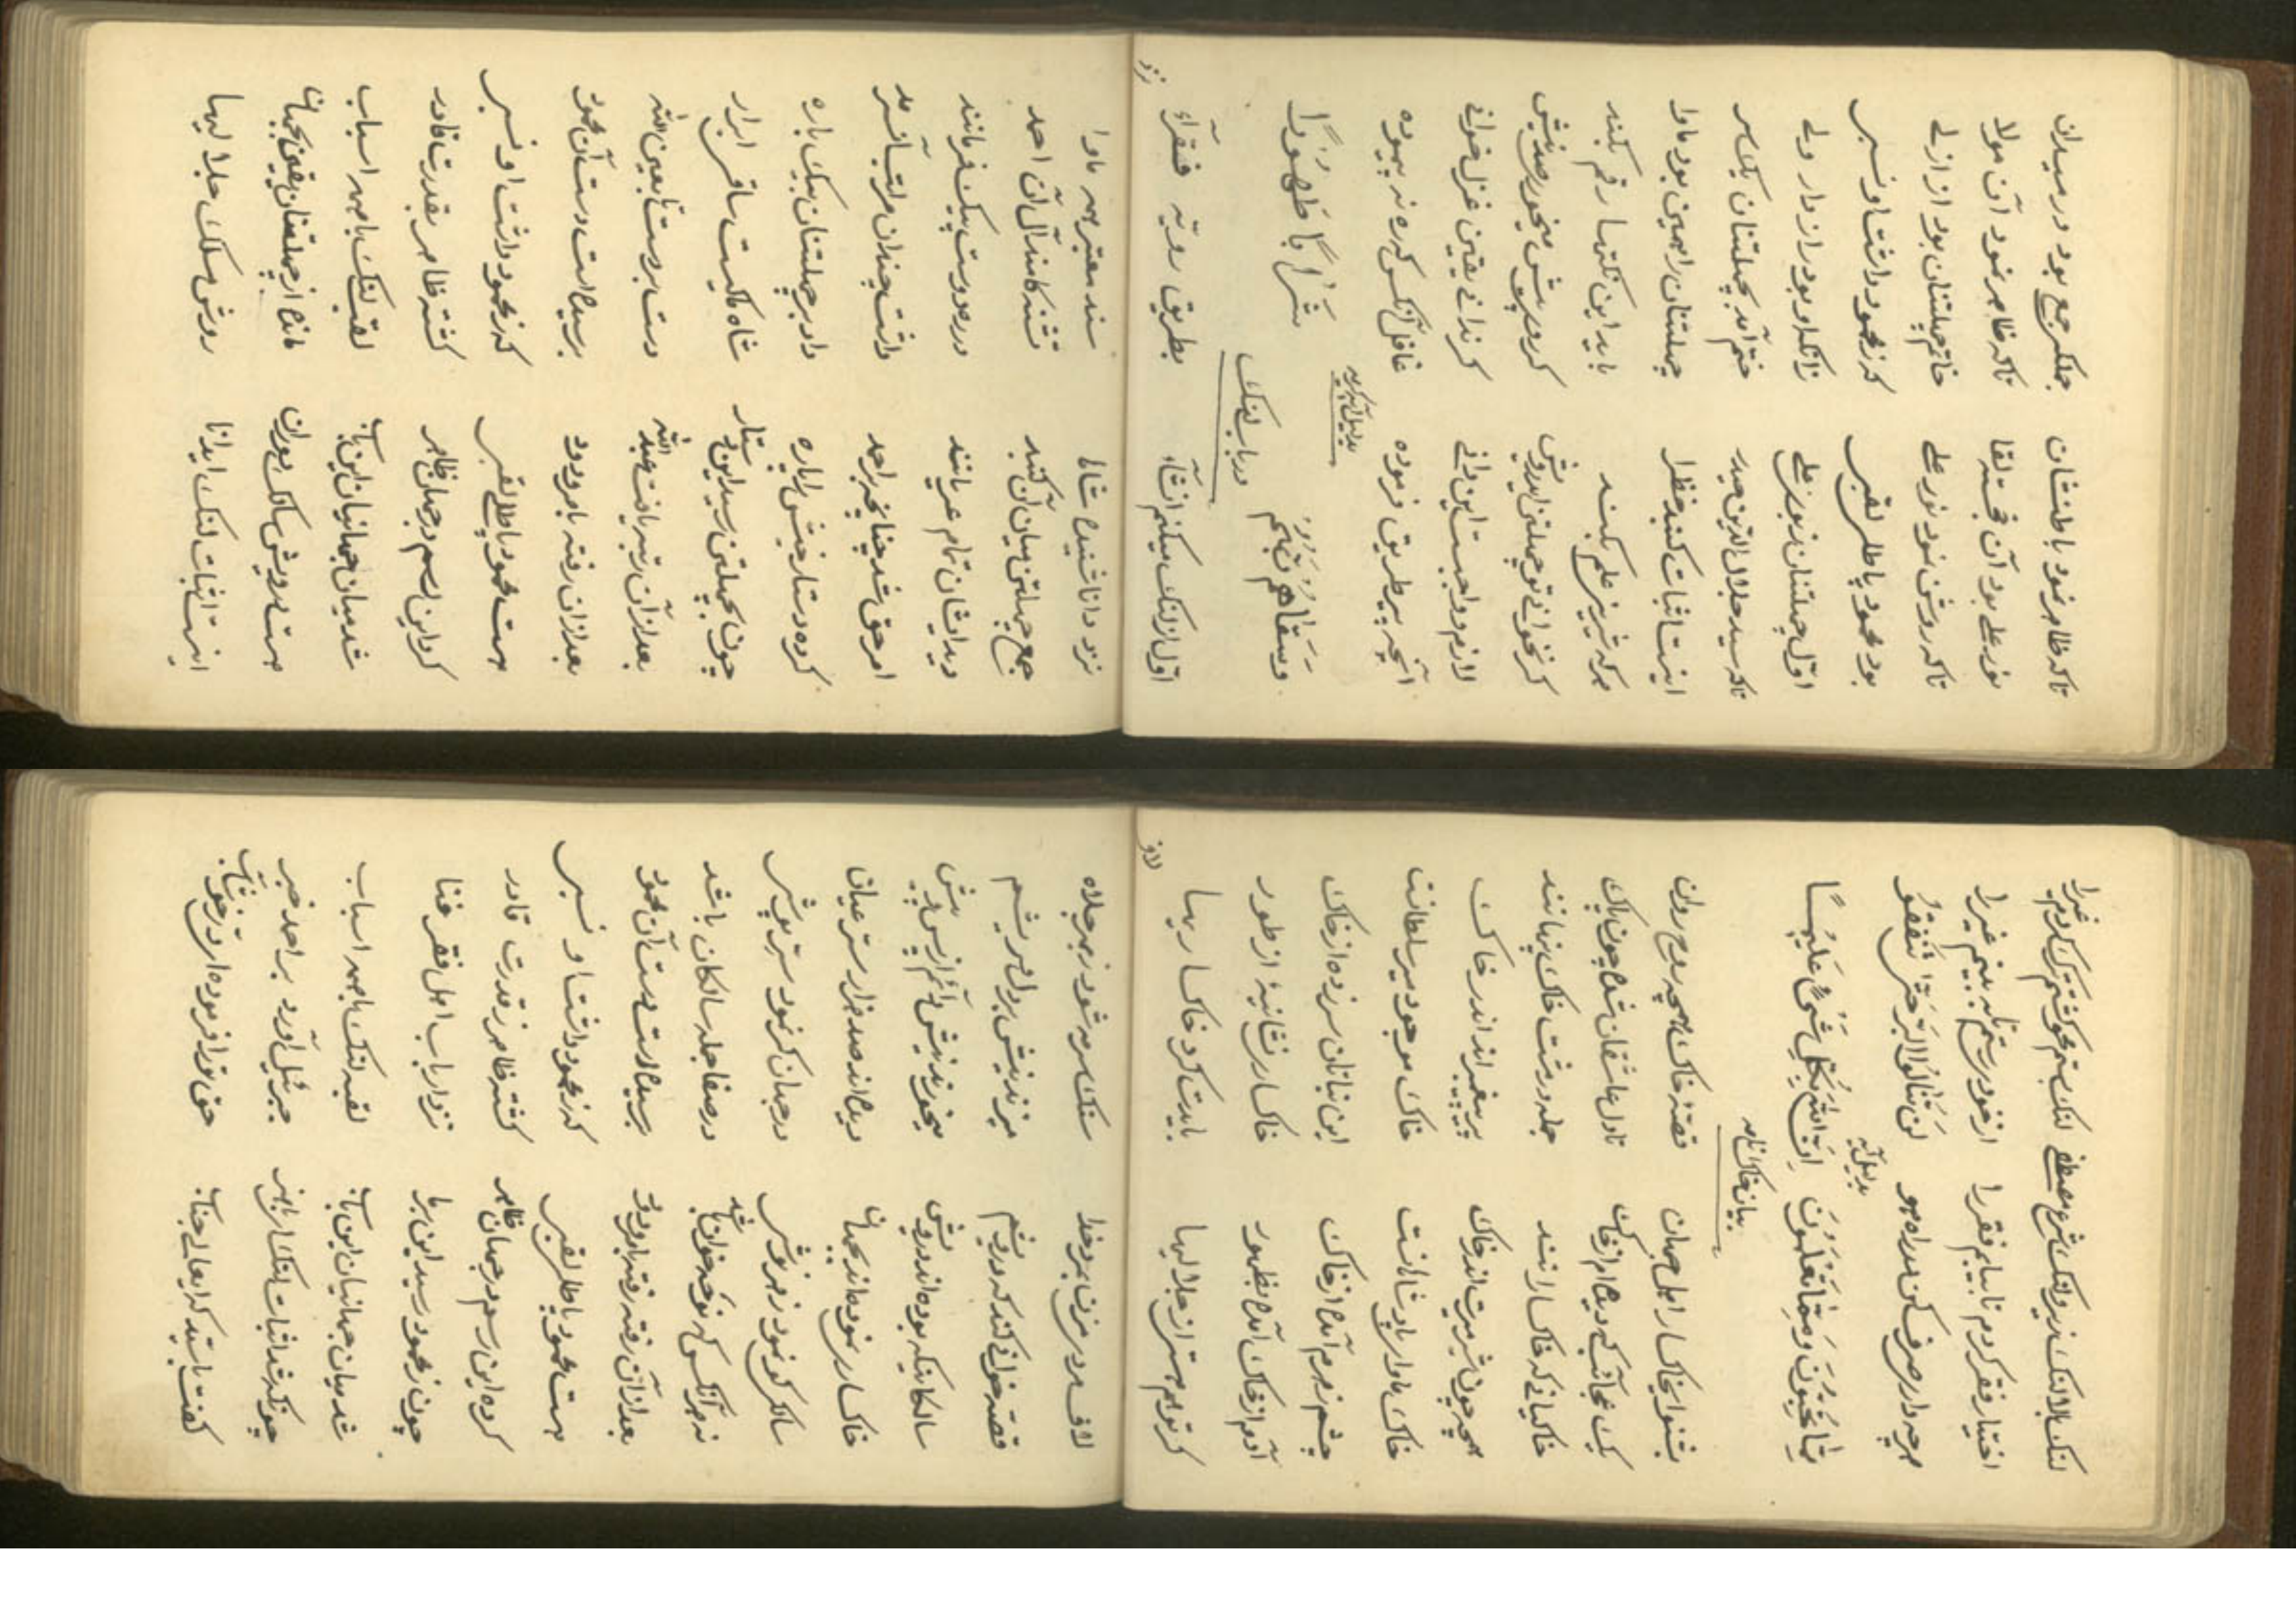 تاکه ظاهر نمود باطنشان جملگی جمع بود در میدان
نور علی بود آن خجسته لقا تاکه ظاهر نمود آن مولا
تاکه روشن نمود نور علی خاتم چهلتنان بود از ازلی
بود محمود پاطلی لقبی که ز محمود داشت او نسبی
اول چهلتنان ز نور علی زانکه او بود راز دار ولی
تاکه سید جلال الدین حیدر ختم آمد بچهلتنان یکسر
اینست اثبات گنبد خظرا چهلتنان را همین بود ماوا
هرکه شیرین علم بکند باید این نکتها رقم بکند
گر نخوانی تو چهلتن ای درویش میخور صد نیش
لازم و واجبست این دانی گر ندانی یقین غزل خوانی
آنچه پیر طریق فرموده غافل آنکس که ره نه پیموده
بدلیل آیه کریمه
وَسَقَاهُم رَبُّهُم شَرَابًا طَهُورًا
در باب لنک
اول از لنک میکنم انشآء بطریق رویه فقرآء
نزد
نزد دانا شنیدم سند معتبر ماوا
جمع چهلتن میان آن گنبد تشنه کامند آل آن احمد
دید ایشان تمام عریانند در ره دوست پیک فرمانند
امر حق شد چنانچه بر احمد داشت چندان مراتب آن سرمد
کرده دستار خویش را پاره داد بر چهلتنان بیک باره
چون بچهلتن رسید این دستار شاه ساقی ابرار
بعد از آن رتبه یافت عبد الله دست بر دست تا بعین الله
بعد از آن رفته ودود برسید است دست آن محمود
هست محمود پاطلی لقبی که ز محمود داشت او نسبی
کرد این رسم در جهان ظاهر گشته ظاهر بقدرت قادر
شد میان جهانیان این باب لقب لنک با همه اسباب
هست درویش سالک دوران مانده از چهلتنان یقین بجهان
اینست اثبات لنک ای دانا روش و سلک جلالیها
لنک بالا لنک زیر و لنک شرع مصطفی لنک بستم محو گشتم ترک کردم غیرا
اختیار فقر کردم تا بیابم فقر را از خود رستم تا نه بینم غیرا
هر چه داری صرف کن در راه هو لن تَنَالُوا البِرَّ حَتّٰی تُنفِقُو
بدلیل آیه
مِمَّا تُحِبُّونَ وَمِمَّا تُنفِقُونَ اِنَّ اللهَ بِکُلِّ شَیءٍ عَلِیمًا
بیان خاک نامه
بشنو از خاکسار اهل جهان قصهٔ خاک همچو روح روان
یک عجائب که دیده ام از خاک تا دل عاشقان شده چون پاک
خاکیانی که خاکسارانند جمله در پشت خاک پنهانند
همچه چون شیریت اندر خاک پیر پیغمبر اند اندر خاک
خاک ماوای پادشاهانست خاک موجود میر سلطانست
چشم ز مردم آمده از خاک این نباتان سر زده از خاک
آدم از خاک آمده بظهور خاکساری نشانهٔ از طهور
گر تو هم هستی از جلالیها بایدت کرد خاکساریها
لاف
لاف مردی مزن بمرد خدا سنک سرمه شود ز بهر جلاه
قصه خوانی کند که درویشم میزند نیش بر دل هر ریشم
سالکانیکه بوده اند درویش میخورند نیش دائم از پس و پیش
خاکساری نموده اند بجهان دیده اند صد هزار ستر عیان
سالکی کو نمود زهر نوش در جهان کو نمود ستر بپوش
نه هر آنکس که نوحه خوان باشد در صفا جمله سالکان باشد
بعد از آن رفته رفته ودود برسید است دست آن محمود
هست محمود پاطلی لقبی که ز محمود داشت او نسبی
کرده این رسم در جهان ظاهر گشته ظاهر ز قدرت قادر
چون ز محمود رسید این برما نزد ارباب اهل فقر فنا
شد میان جهانیان این باب لقب لنک با همه اسباب
چونکه شد اثبات لنک جبرئیل آورد بر احمد خبر
گفت باید که ایعالی جناب حق ترا فرموده است